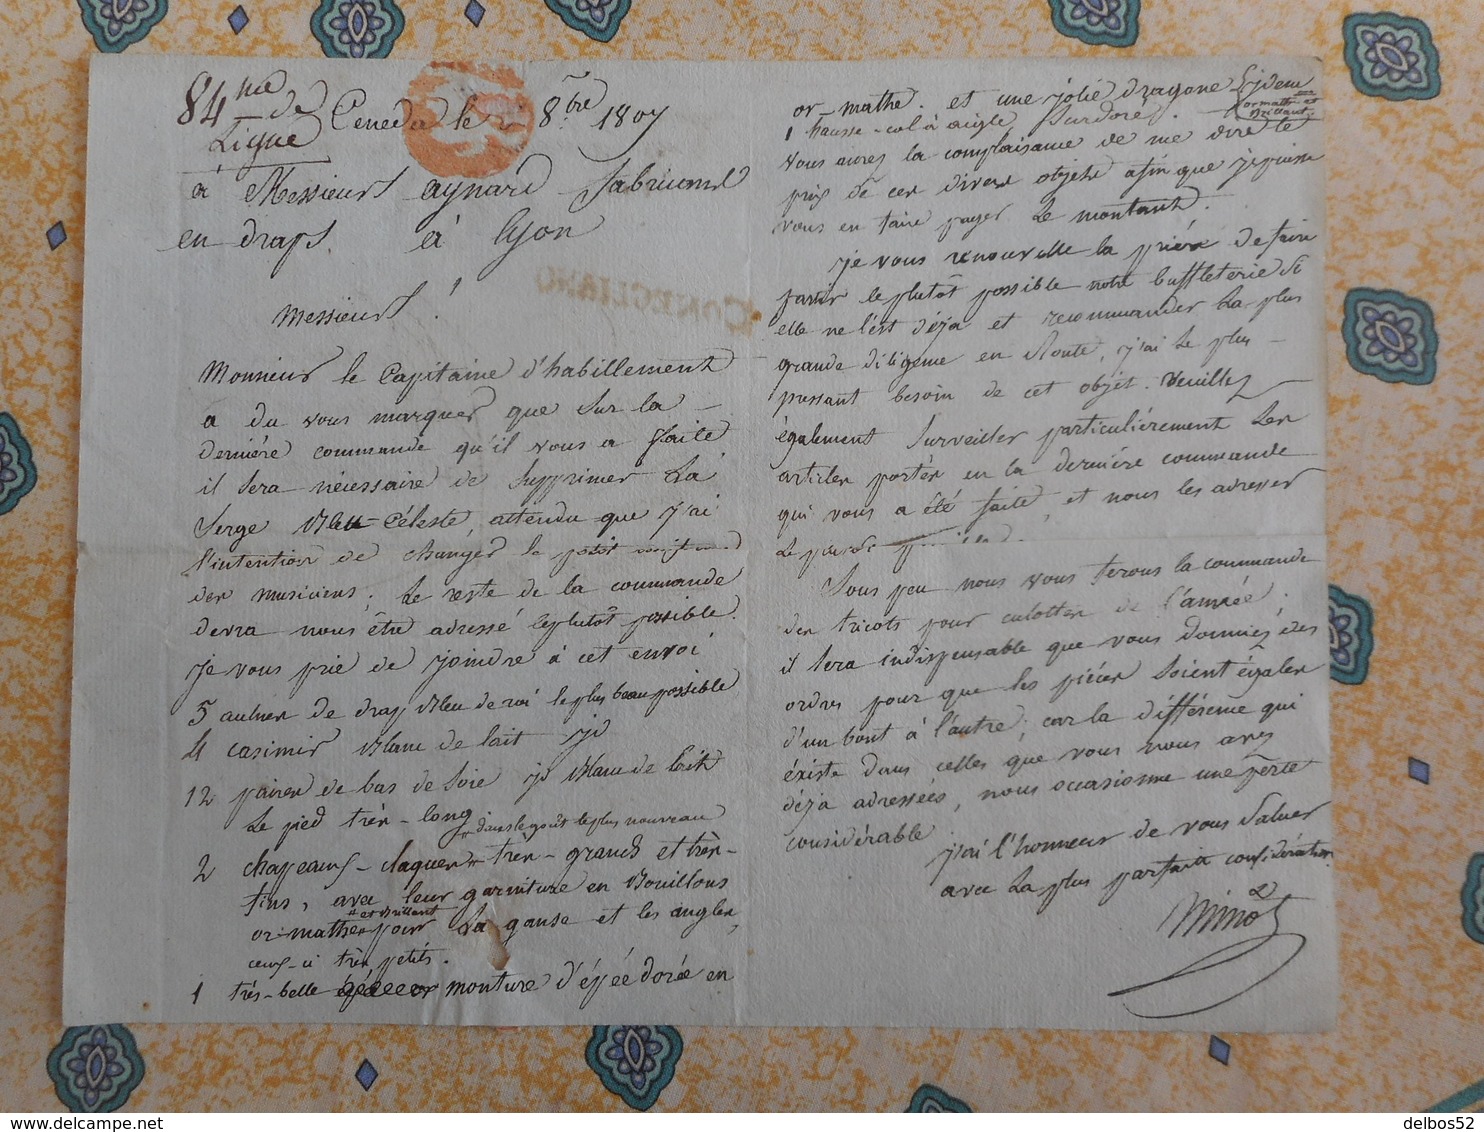 84me de
Ligne
Ceneda le 8.bre 1807
à Messieurs aynard fabricans
en draps. à Lyon
CONEGLIANO
Messieurs !
Monsieur le Capitaine d'habillement
a du vous marquer que sur la
derniére commande qu'il vous a faite
il sera nécessaire de supprimer La
Serge bleu-Céleste, attendu que j'ai
l'intention de changer le petit
des musiciens; Le reste de la commande
devra nous être adressé leplutôt possible.
je vous prie de joindre à cet envoi
5 aulnes de drap bleu de roi le plus beau possible
4 casimir blanc de lait id
12 paires de bas de soie id blanc de lait
Le pied très-long
dans le goût le plus nouveau
2 chapeaux-claques très-grands et très-
fins, avec leur garniture en bouillons
et brillant
or-mathe pour la ganse et les angles,
ceux-ci très petits.
1 très-belle monture d'épée dorée en
or-mathe. et une jolie dragone idem
or mathe et
brillant.
1 hausse-col à aigle surdoré.
vous aurez la complaisance de me dire le
prix de ces divers objets afin que je puisse
vous en faire payer Le montant.
je vous renouvelle la prière de faire
partir leplutôt possible notre buffleterie si
elle ne l'est déja et recommander La plus
grande diligence en Route, j'ai Le plus
pressant besoin de cet objet. Veuillez
également surveiller particuliérement Les
articles portés en la derniére commande
qui vous a été faite, et nous les adresser
Sous peu nous vous ferons la commande
des tricots pour culottes de l'année;
il sera indispensable que vous donniez des
ordres pour que les piéces soient égales
d'un bout à l'autre; car la différence qui
éxiste dans celles que vous nous avez
déja adressées, nous occasionne une perte
considérable
j'ai l'honneur de vous saluer
avec La plus parfaite considération
Minot
delbos52